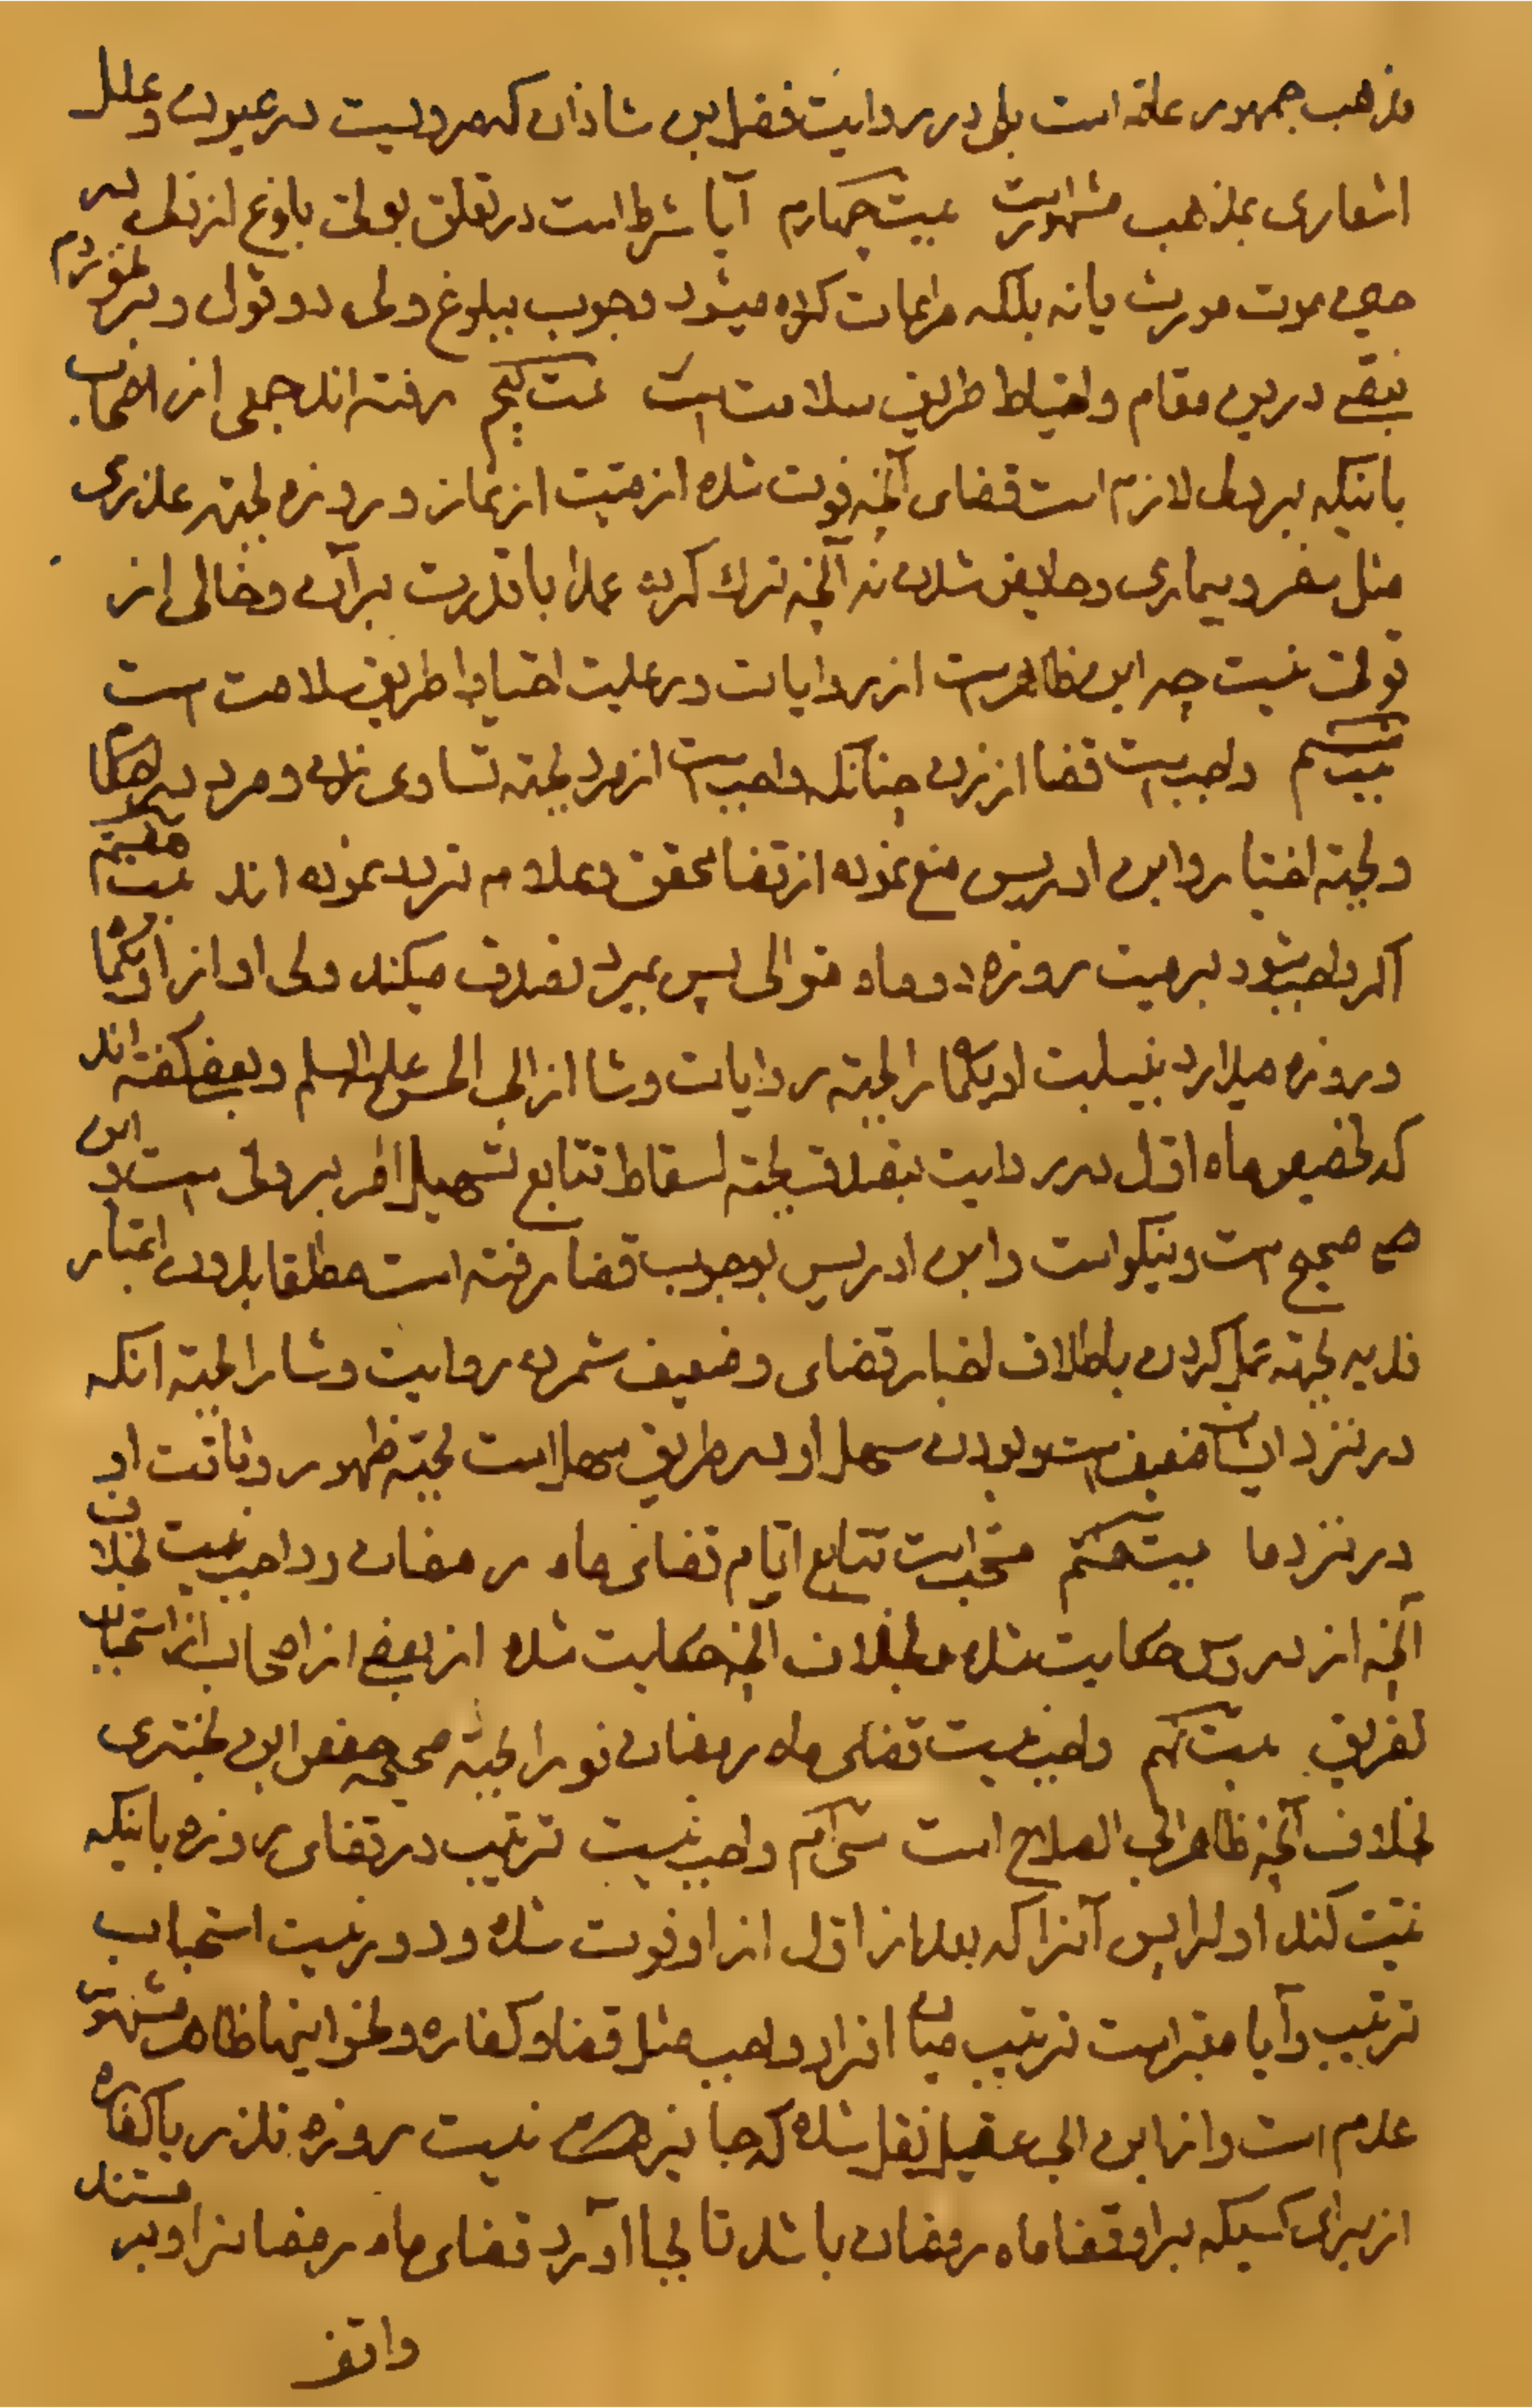 مذهب جمهور عامّه است بلی در روایت فضل بن شاذان که مرویست در عیون و علل
اشعاری بمذهب مشهور است بیست چهارم آیا شرط است در تعلق بولی بلوغ از ولی در
حین موت مورث یا نه بلکه مراعات کرده میشود وجوب ببلوغ ولی دو قول و بر نخوردم
بنصّی درین مقام و احتیاط طریق سلامت است بیست پنجم رفته اند جمعی از اصحاب
باینکه بر ولی لازم است قضای آنچه فوت شده از میّت از نماز و روزه بجهة عذری
مثل سفر و بیماری و حایض شدن نه آنچه ترک کرده عمدا با قدرت بر آن و خالی از
قوتی نیست چه این ظاهر است از روایات و رعایت احتیاط طریق سلامت است
بیست ششم واجب است قضا از زن چنانکه واجب است از مرد بجهة تساوی زن و مرد در احکام
و بجهة اخبار و ابن ادریس منع نموده از قضا و محقق و علامه تردد نموده اند بیست هفتم
اگر واجب شود بر میت روزه دو ماه متوالی پس بمیرد تصدق میکند ولی او از او یکماه
و روزه میدارد بنیابت او یکماه را بجهة روایات وشا از ابی الحسن علیه السلم و بعضی گفته اند
که تخصیص ماه اول در روایت بتصدق بجهة اسقاط تتابع و تسهیل امر بر ولی است و این
هم صحیح است و نیکو است و ابن ادریس بوجوب قضا رفته است مطلقا بدون اعتبار
فدیه بجهة عمل کردن باطلاق اخبار قضای و ضعیف شمرده روایت وشا را بجهة انکه
در نزد ایشان ضعیف است و بودن سهل او در طریق سهل است بجهة ظهور وثاقت او
در نزد ما بیست هشتم مستحب است تتابع ایّام قضای ماه رمضان و واجب نیست بخلاف
آنچه از دروس حکایت شده و بخلاف آنچه حکایت شده از بعضی از اصحاب از استحباب
تفریق بیست نهم واجب نیست قضای ماه رمضان فورا بجهة صحیحه حفص ابن بختری
بخلاف آنچه ظاهر ابی الصلاح است سی ام واجب نیست ترتیب در قضای روزه باینکه
نیّت کند اول را پس آنرا که بعد از اول از او فوت شده و دور نیست استحباب
ترتیب و آیا معتبر است ترتیب میان افراد واجب مثل قضا و کفاره و نحو اینها ظاهر مشهور
عدم است و از ابن ابی عقیل نقل شده که جایز نیست روزه نذر یا کفاره
از برای کسیکه بر او قضا ماه رمضان باشد تا بجا آورد قضای ماه رمضانرا و بر مستند
واقف